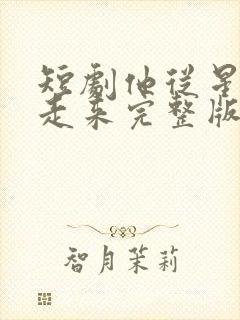 短劇他從星
走來完整版
智月茉莉